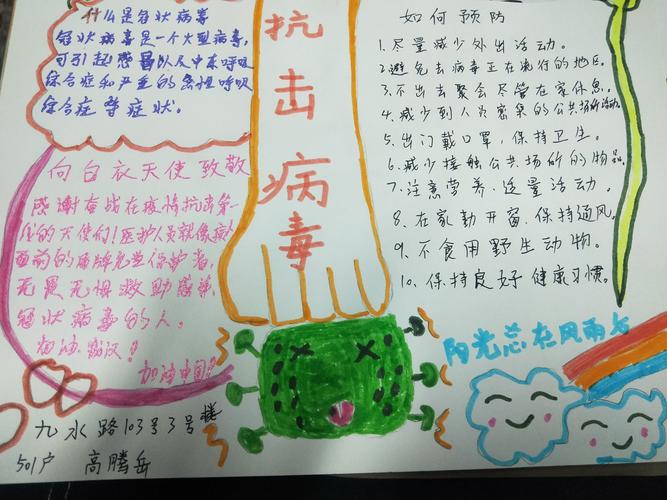 什么是冠状病毒
冠状病毒是一个大型病毒,
可引起感冒以及中东呼吸
综合症和严重的急性呼吸
综合症等症状。
向白衣天使致敬
感谢奋战在疫情抗击第一
线的天使们!医护人员就像病人
面前的盾牌免费保护者,
无畏无惧救助感染
冠状病毒的人。
加油武汉!
加油中国!
九水路103号3号楼
501户 高腾岳
抗
击
病
毒
如何预防
1.尽量减少外出活动。
2.避免去病毒正在流行的地区。
3.不出去聚会尽管在家休息。
4.减少到人员密集的公共场所活动。
5.出门戴口罩,保持卫生。
6.减少接触公共场所的物品。
7.注意营养,适量活动。
8.在家勤开窗,保持通风。
9.不食用野生动物。
10.保持良好健康习惯。
阳光总在风雨后